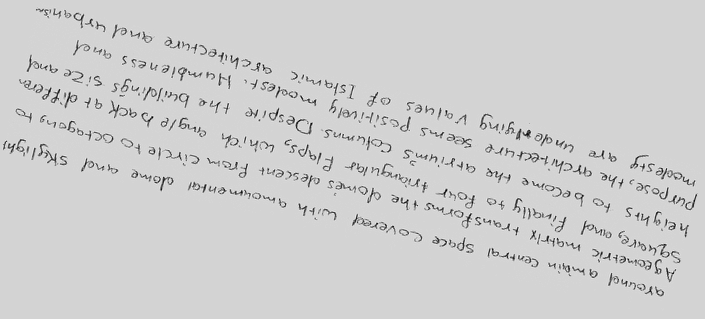 around amain central space covered with amoumental dome and skylight
Ageometric matrix transforms the domes descent from circle to octagons to
square, and finally to four triangular flaps, which angle back at differen
heights to become the atrium's columns. Despite the buildings size and
purpose, the architecture seems positively modest. Humbleness and
modesty are underlying values of Islamic architecture and urbanism